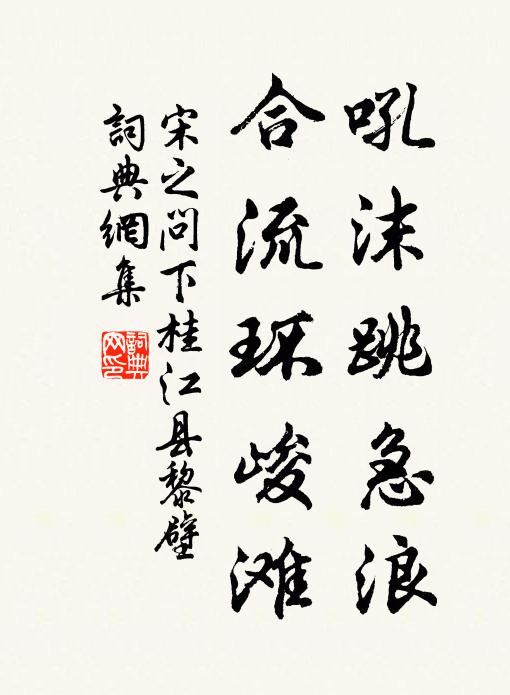 吼沫跳急浪
合流环峻滩
宋之问下桂江县黎壁
詞典網集
詞典网印